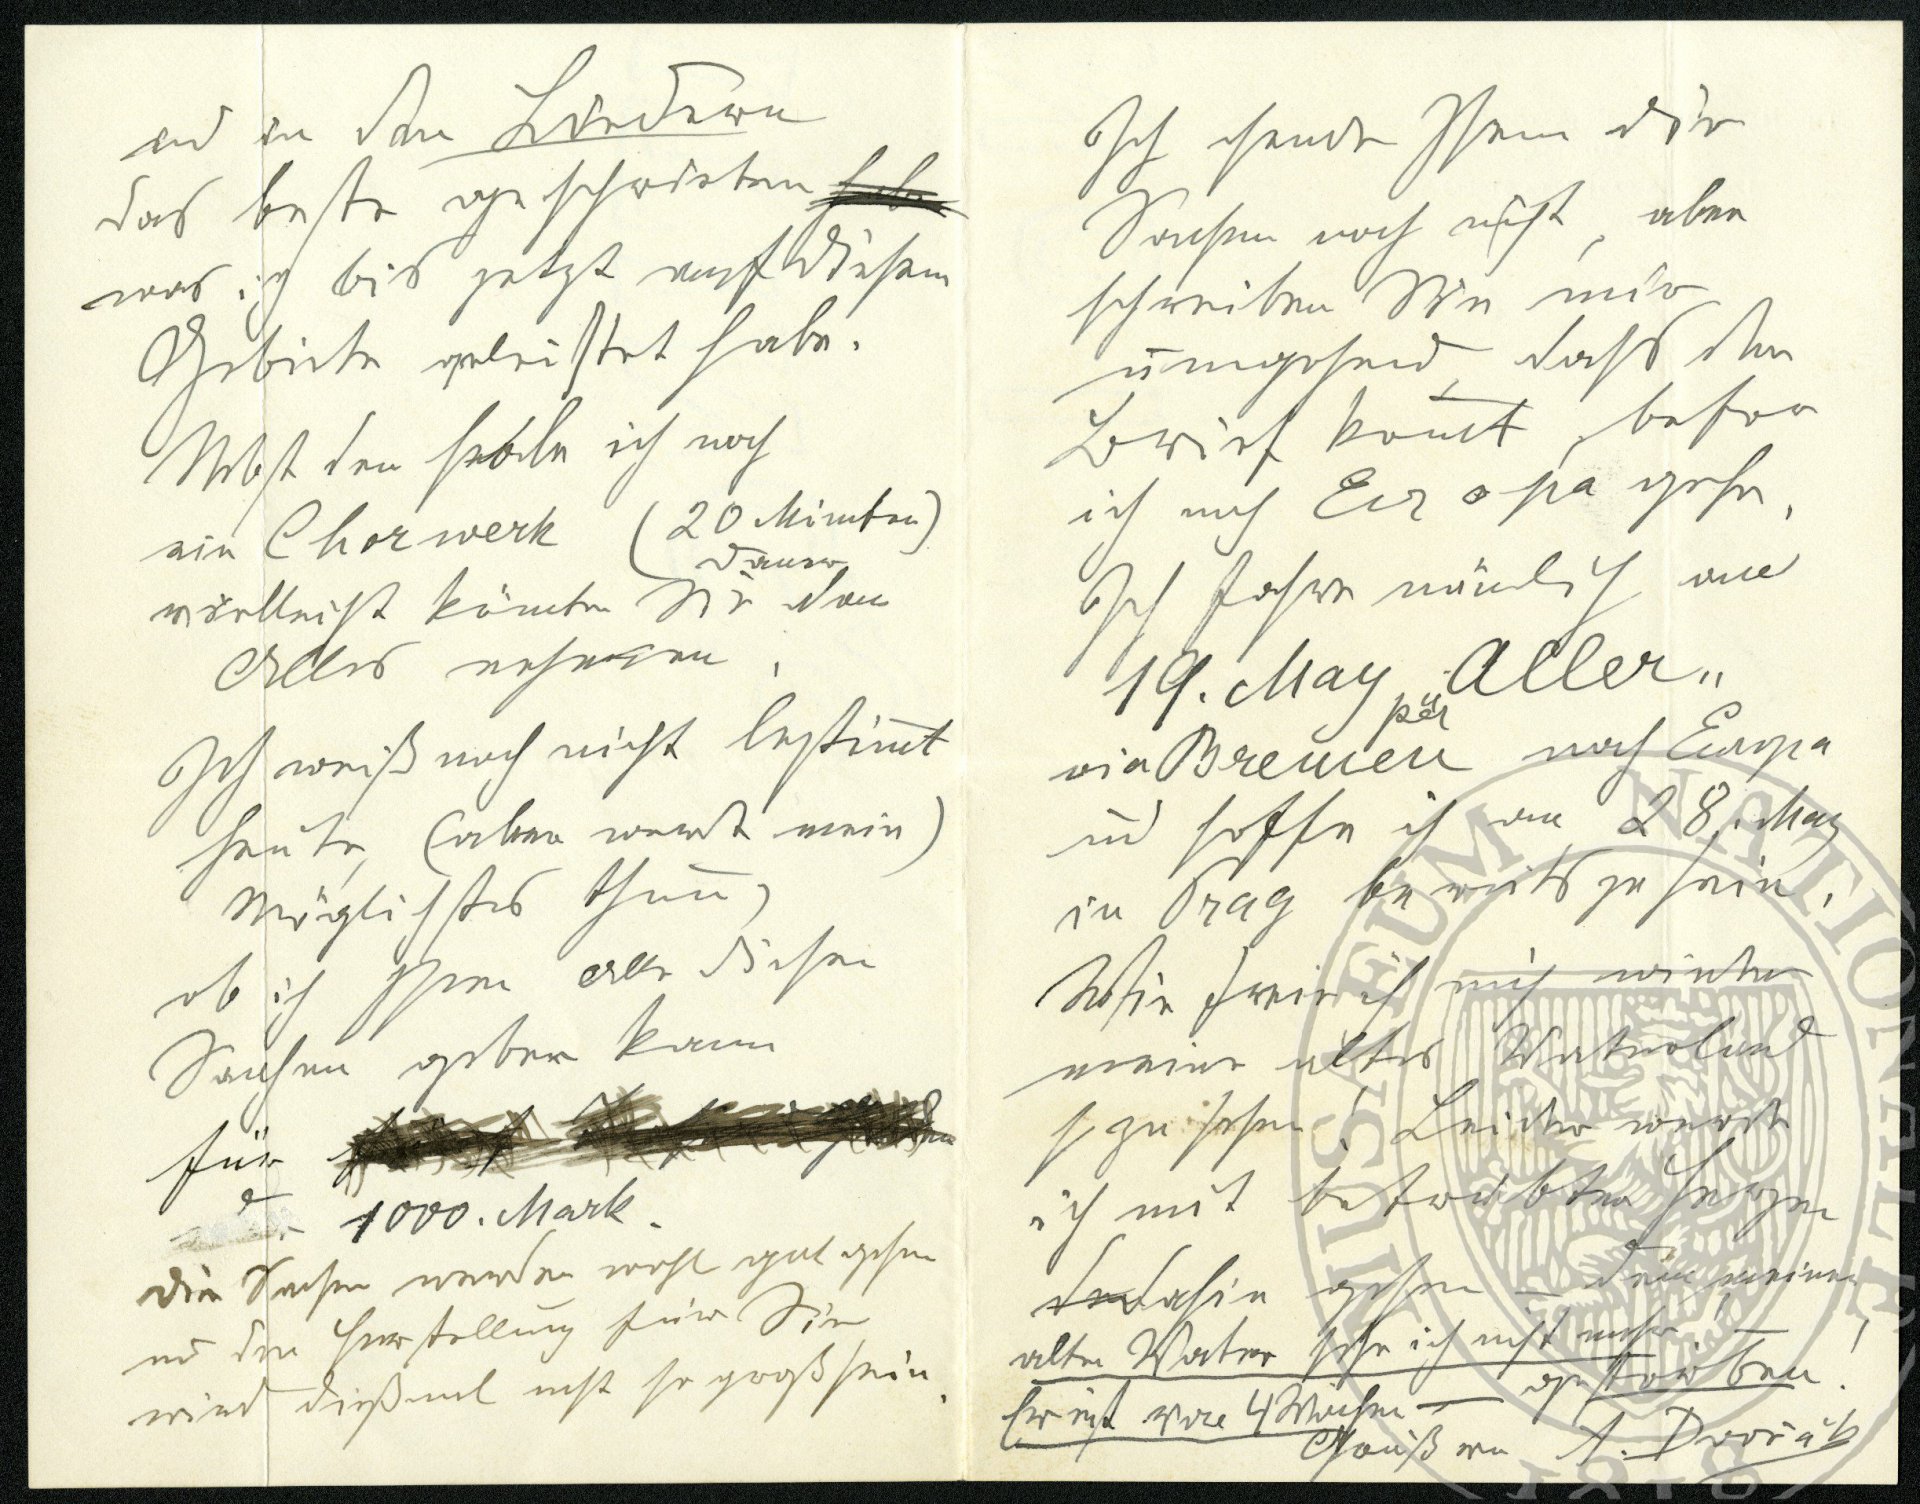 und in den Liedern
das beste geschrieben habe
was ich bis jetzt auf diesem
Gebiete geleistet habe.
Nebst den habe ich noch
ein Chorwerk (20 Minuten)
Dauer
vielleicht könnten Sie dan
Alles nehmen.
Ich weiß noch nicht bestim̅t
heute, (aber werde mein)
Möglichstes thun̅,
ob ich Ihnen alle diesen
Sachen geben kann
für
1000. Mark.
Die Sachen werden wohl gut gehen
und die Herstellung für Sie
wird dießmal nicht so groß sein.
Ich sende Ihnen die
Sachen noch nicht, aber
schreiben Sie mir
umgehend, dass der
Brief kom̅t, befor
ich nach Europa gehe.
Ich fahre nämlich am
19. May „Aller"
per
via Bremen nach Europa
und hoffe ich am 28. May
in Prag bereits zu sein.
Wie freue ich mich wieder
meine altes Vaterland
zu sehen! Leider werde
ich mit betrübten Herzen
dahin gehen – den meinen
alten Vater sehe ich nicht mehr! –
Er ist vor 4 Wochen – gestorben!
Grüßen A. Dvořák
MUSAEUM NATIONALE
1818